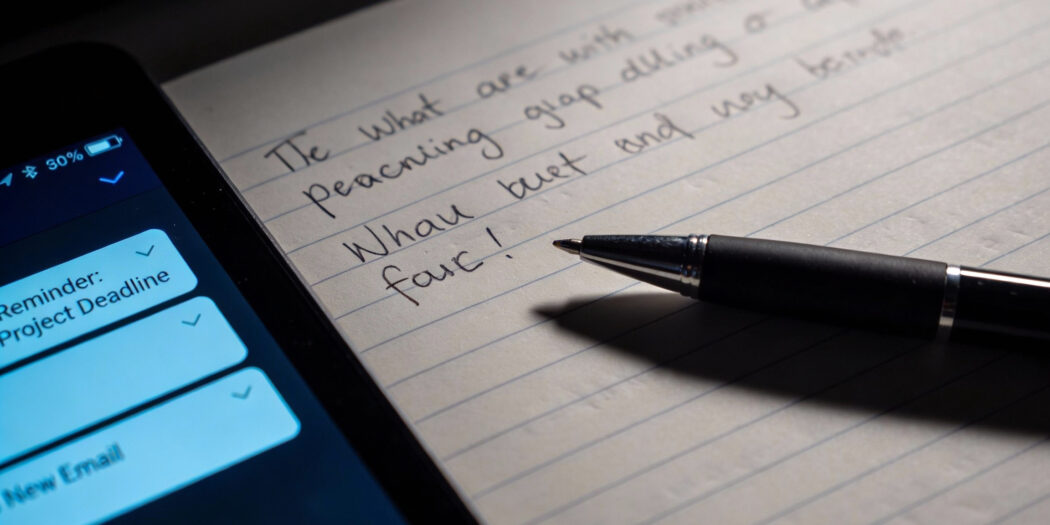 30%
Reminder:
Project Deadline
New Email
The what are with
peacniing giap dlling a
Whau buet and woy
faic!